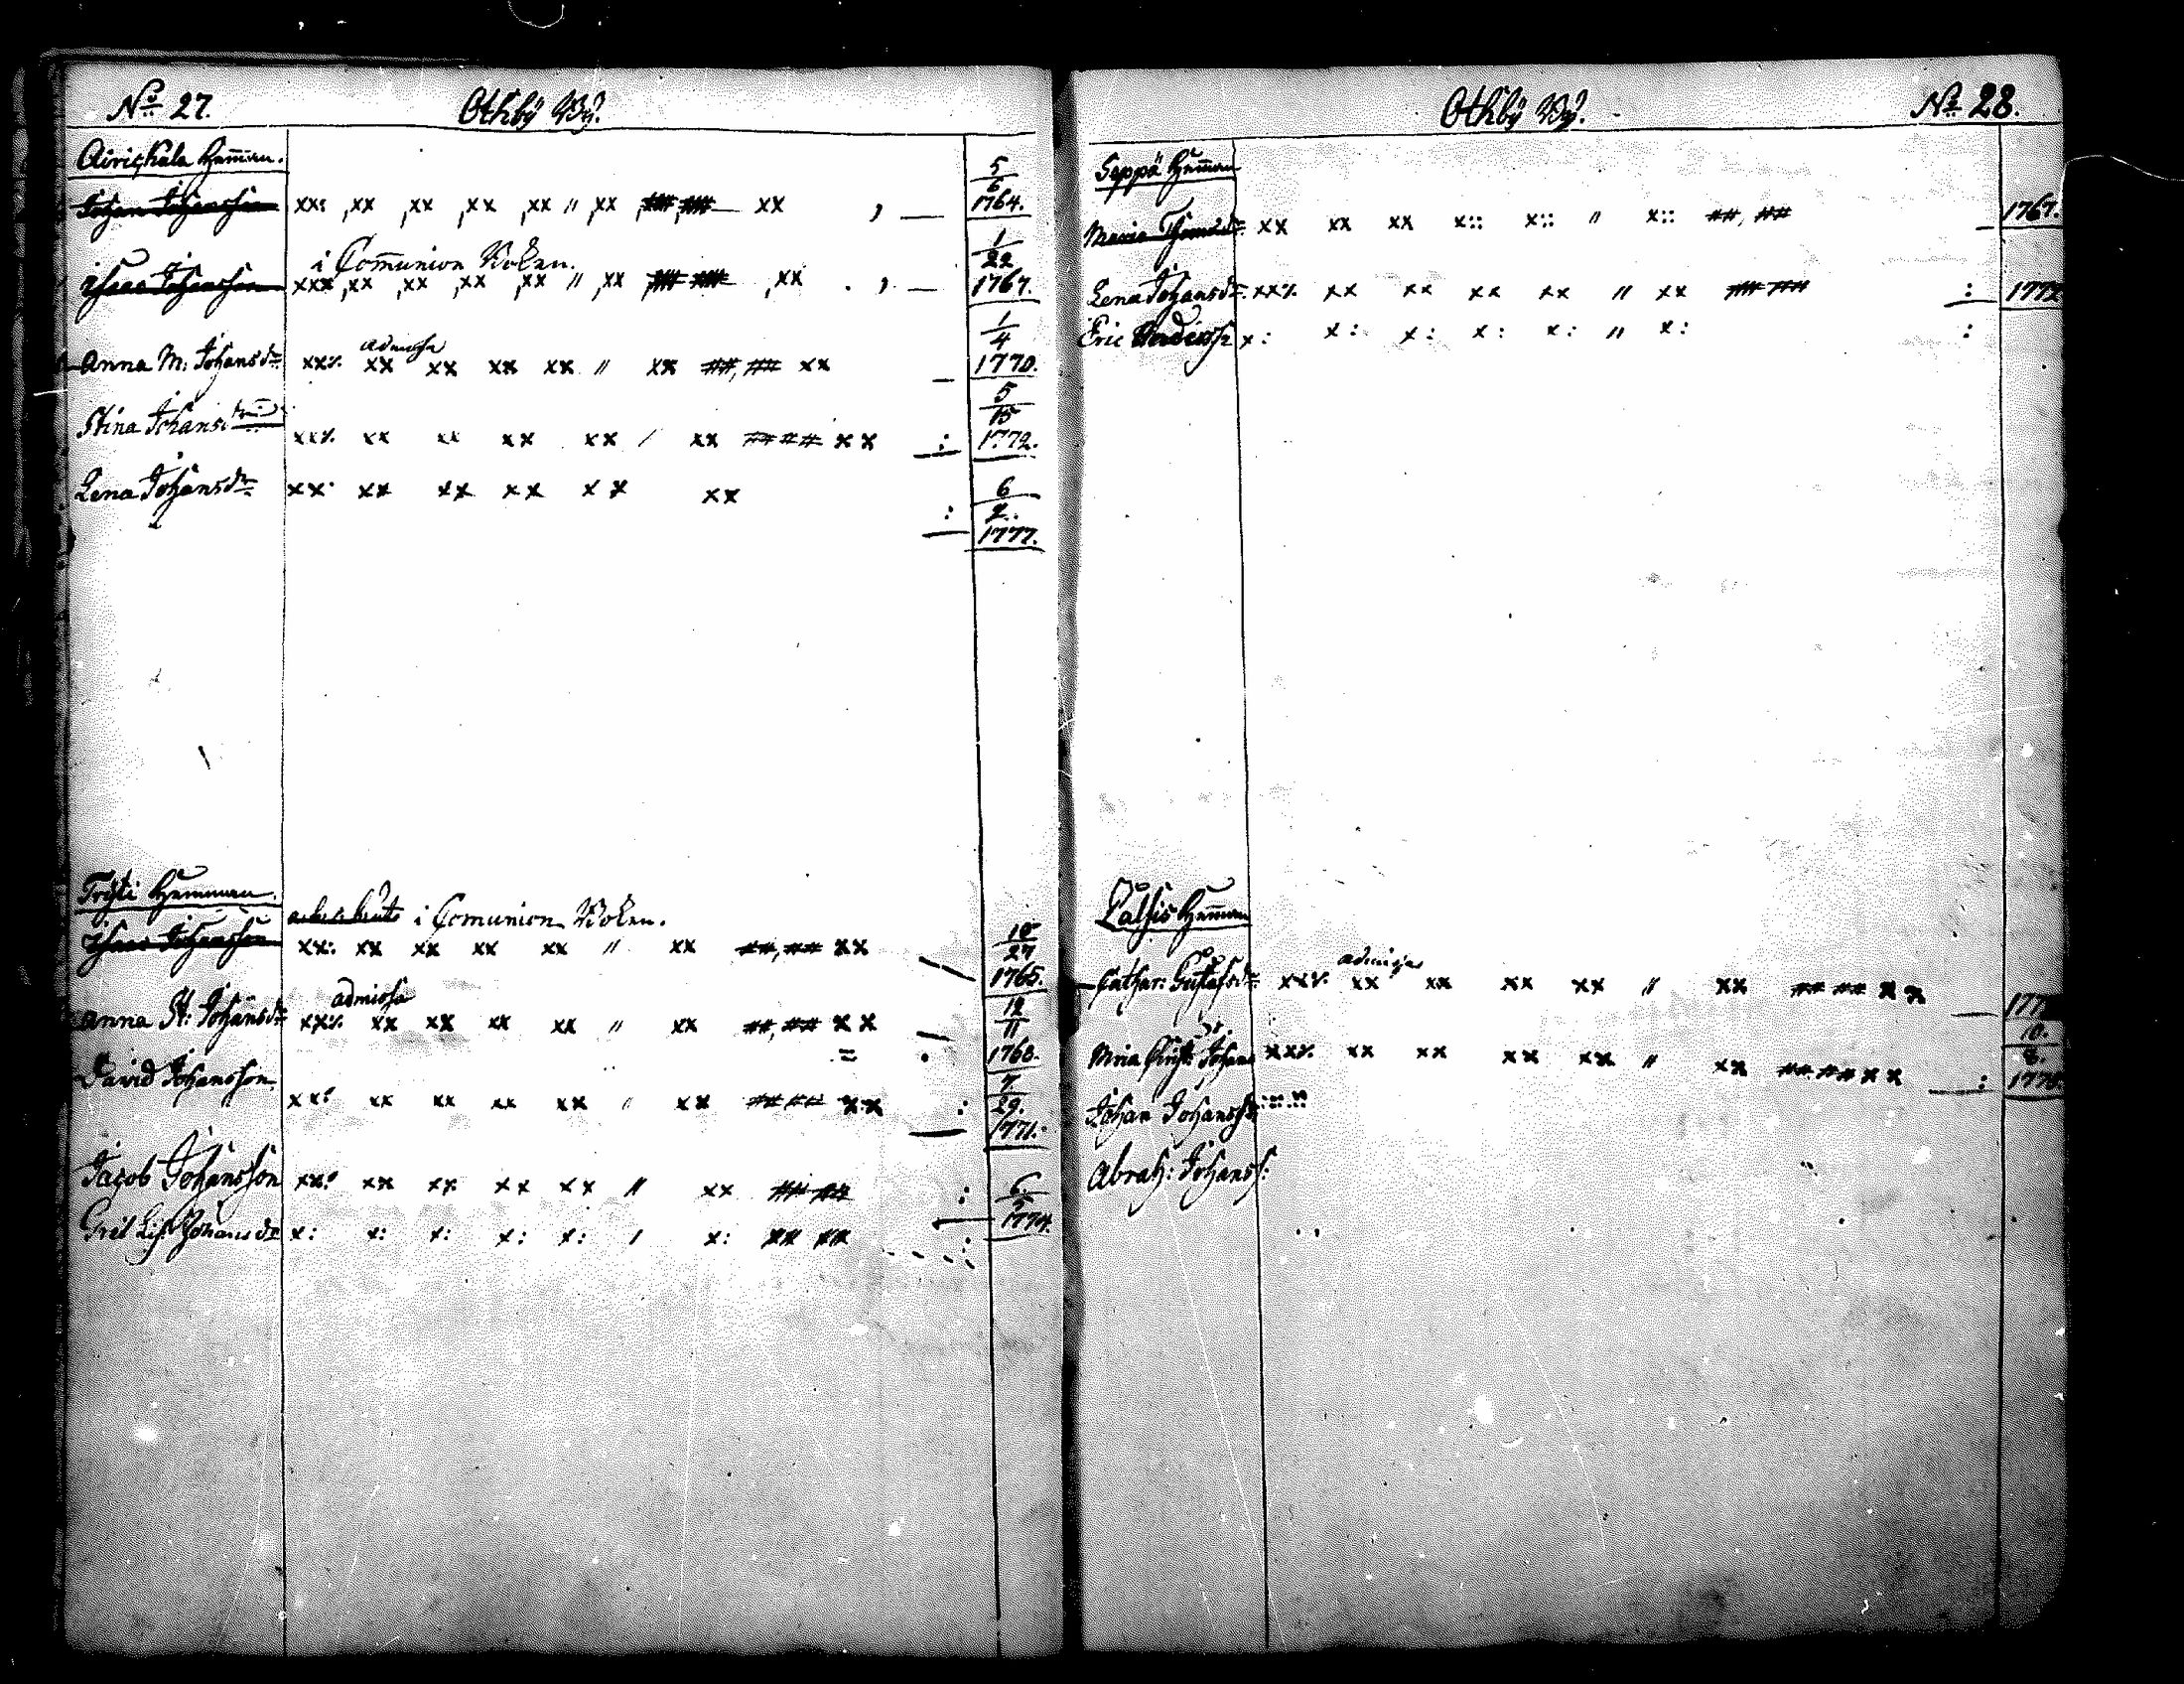 No 27. Othby By.
Airickala Hemman.
Johan Johansson xx: ,xx ,xx ,xx ,xx // ,xx ,## ,## xx , — 5/6 1764.
i Communion Boken.
Johansson xxx ,xx ,xx ,xx ,xx // ,xx ## ## ,xx . , — 1/22 1767.
admissa
Anna M: Johansdr xx% xx xx xx xx // xx ##, ## xx — 1/4 1770.
Stina Johansdr xx% xx xx xx xx / xx ## ## xx : 5/15 1772.
Lena Johansdr xx· xx xx xx xx xx : 6/2. 1777.
Trysti Hemman.
i Comunion Boken.
Johansson xx: xx xx xx xx // xx ##, ## xx — 10/27 1765.
admissa
Anna St: Johansdr xx% xx xx xx xx // xx ##, ## xx — 12/11 1768.
David Johansson xx% xx xx xx xx // xx ## ## xx : 7/29. 1771.
Jacob Johansson xx% xx xx xx xx // xx ## ## : 6. 1774.
Gret Lis: Johansdr x: x: x: x: x: / x: ## ## :
Othby By. No 28.
Seppä Hemman
Maria Thomasdr xx xx xx x:: x:: // x:: ##, ## — 1767.
Lena Johansdr xx% xx xx xx xx // xx ## ## :
Eric x: x: x: x: x: // x: :
Lassis Hemman
admissa
Cathar: Gustafsdr xx% xx xx xx xx // xx ## ## xx —
Johans xx% xx xx xx xx // xx ## ## xx : 10. 8.
Johan Johanss:
Abrah: Johanss: